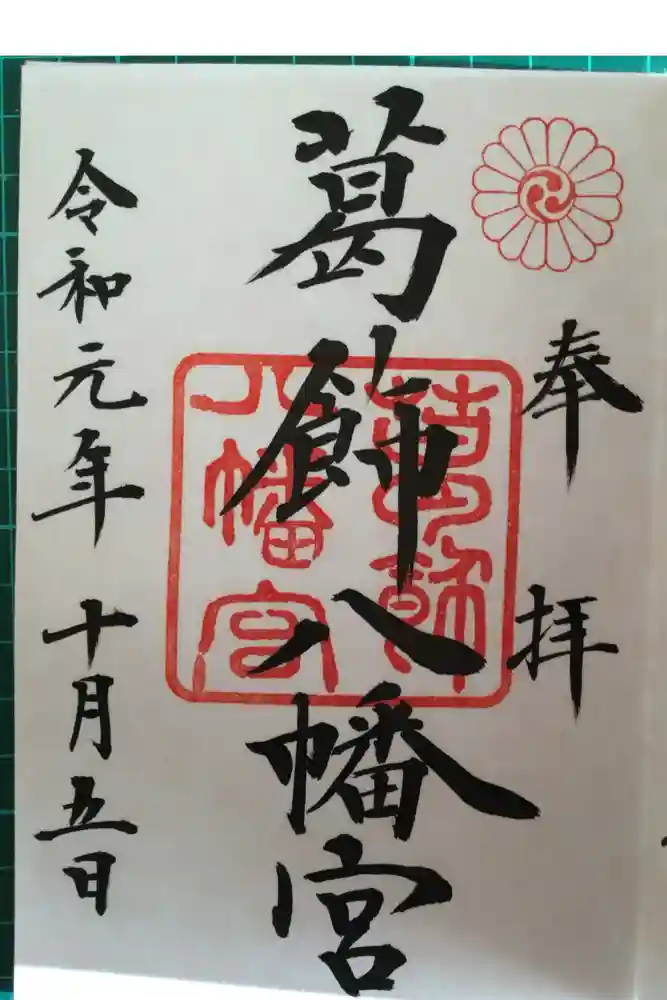 奉拝
葛飾八幡宮
葛飾
八幡宮
令和元年 十月五日